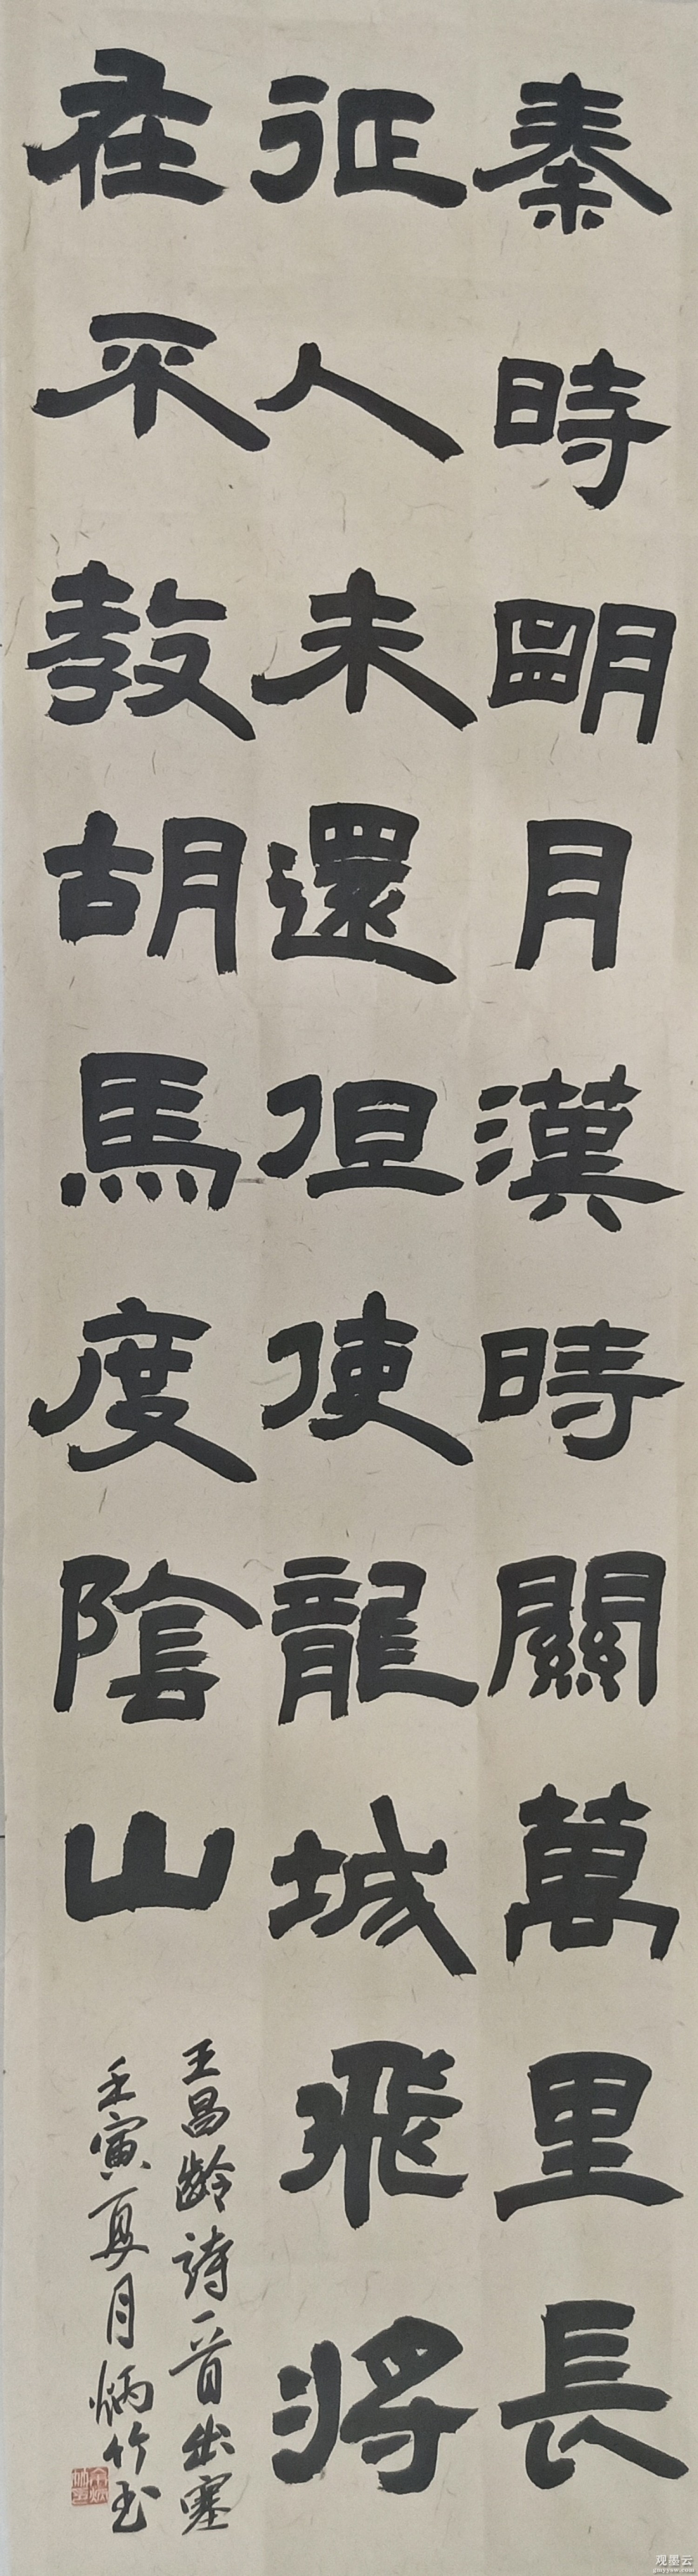 秦時明月漢時關萬里長
征人未還但使龍城飛將
在不教胡馬度陰山
王昌齡詩一首出塞
壬寅夏月炳竹书
观墨云